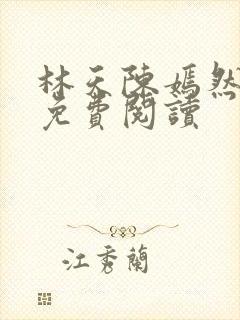 林天陳嫣然
免費閱讀
江秀蘭